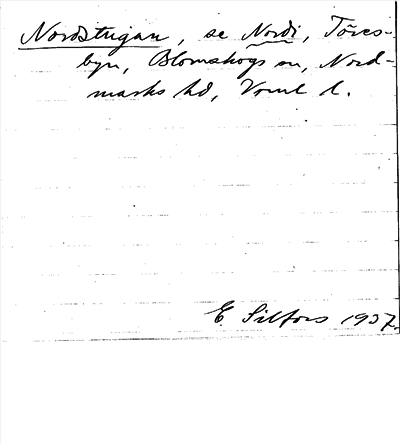 Nordstugan, se Nordi, Töres-
byn, Blomskogs sn, Nord-
marks hd, Vrml l.
E. Silfors 1937.